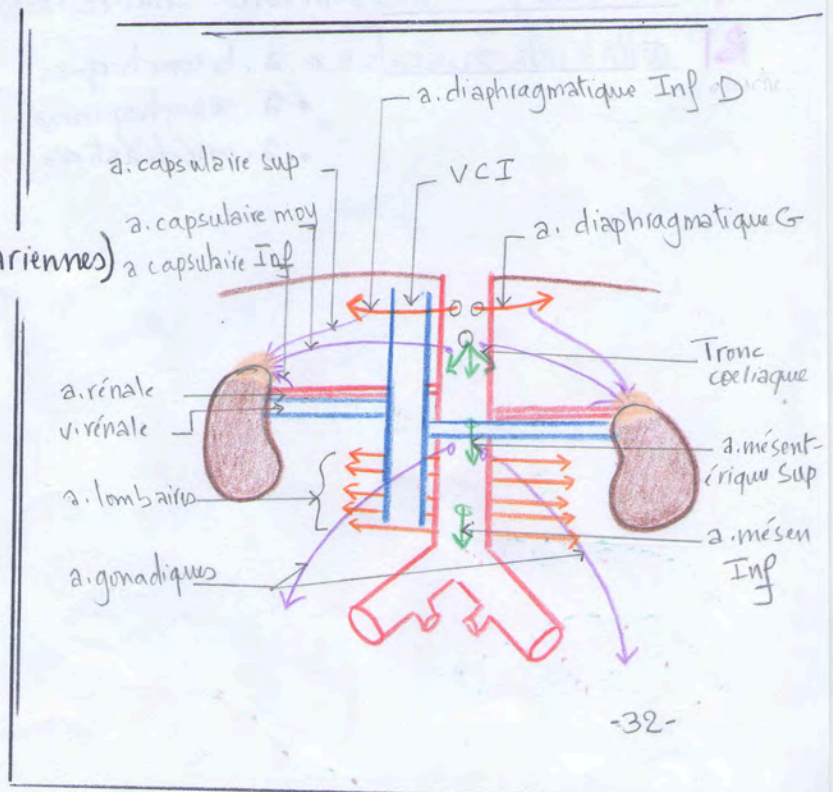 a. diaphragmatique Inf D
a. capsulaire sup
VCI
a. capsulaire moy
a. diaphragmatique G
ariennes)
a capsulaire Inf
Tronc
coeliaque
a. rénale
v. rénale
a. mésent-
érique Sup
a. lombaires
a. mésen
Inf
a. gonadiques
-32-